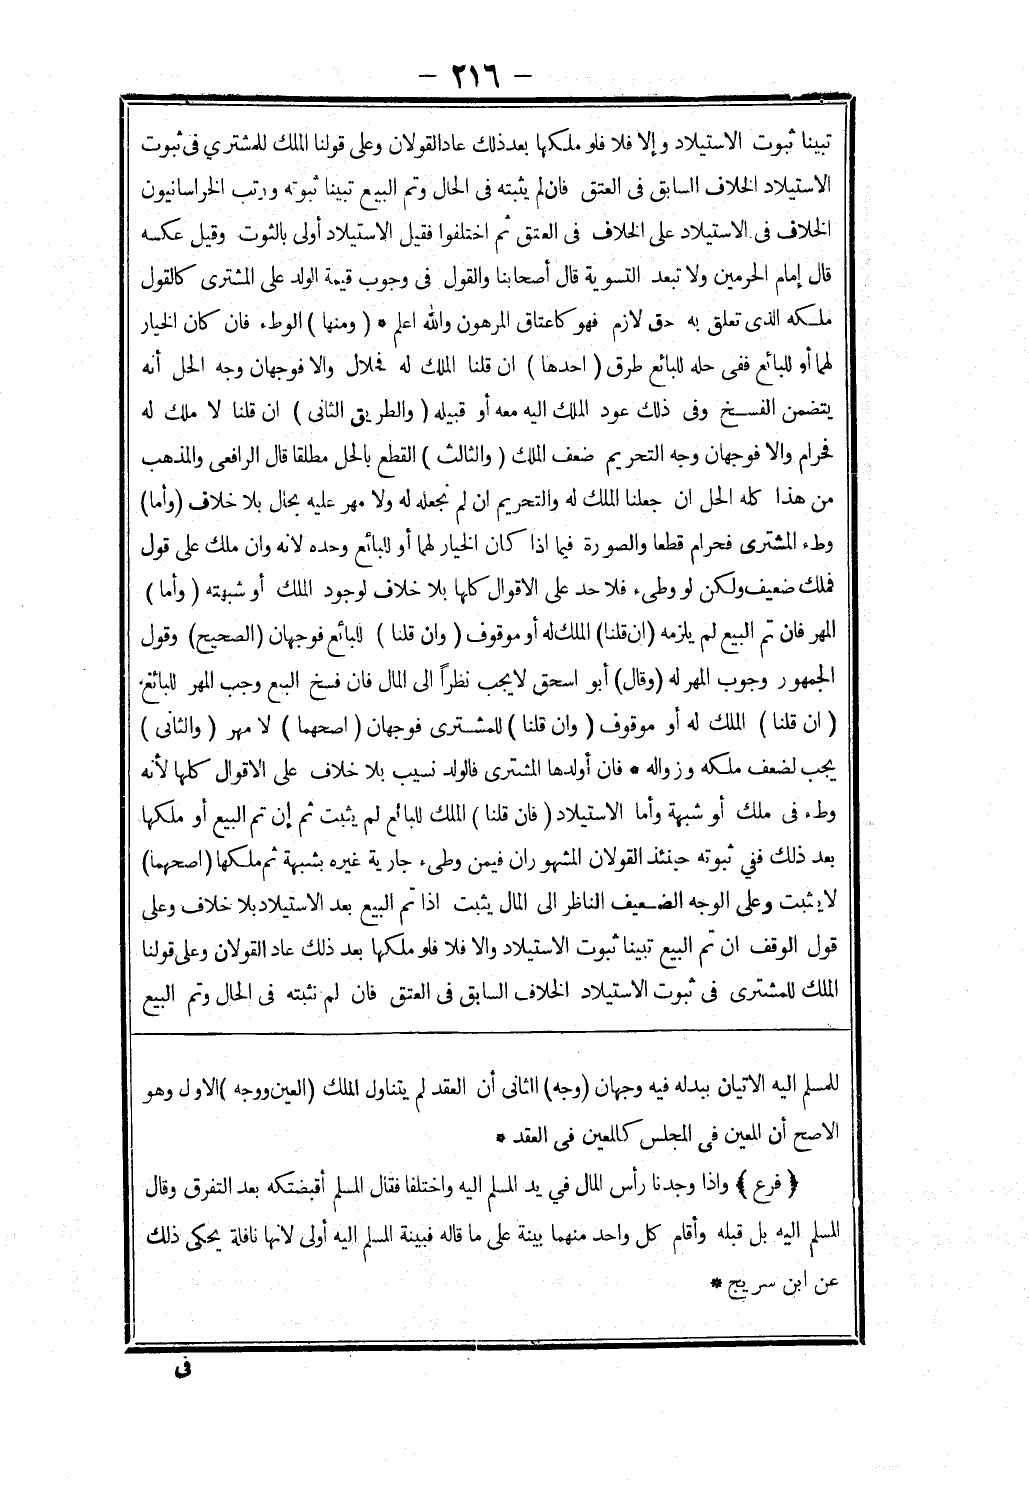 – ٢١٦ –
تبينا ثبوت الاستيلاد وإلا فلا فلو ملكها بعد ذلك عاد القولان وعلى قولنا الملك للمشتري فى ثبوت
الاستيلاد الخلاف السابق فى العتق فان لم يثبته فى الحال وتم البيع تبينا ثبوته ورتب الخراسانيون
الخلاف فى الاستيلاد على الخلاف فى العتق ثم اختلفوا فقيل الاستيلاد أولى بالثوت وقيل عكسه
قال إمام الحرمين ولا تبعد التسوية قال أصحابنا والقول فى وجوب قيمة الولد على المشترى كالقول
ملكه الذى تعلق به حق لازم فهو كاعتاق المرهون والله اعلم * ( ومنها ) الوطء فان كان الخيار
لهما أو للبائع ففى حله للبائع طرق ( احدها ) ان قلنا الملك له فحلال والا فوجهان وجه الحل أنه
يتضمن الفسخ وفى ذلك عود الملك اليه معه أو قبيله ( والطريق الثانى ) ان قلنا لا ملك له
فحرام والا فوجهان وجه التحريم ضعف الملك ( والثالث ) القطع بالحل مطلقا قال الرافعى والمذهب
من هذا كله الحل ان جعلنا الملك له والتحريم ان لم نجعله له ولا مهر عليه بحال بلا خلاف (وأما)
وطء المشترى فحرام قطعا والصورة فيما اذا كان الخيار لهما أو للبائع وحده لانه وان ملك على قول
فملك ضعيف ولكن لو وطىء فلا حد على الاقوال كلها بلا خلاف لوجود الملك أو شبهته ( وأما )
المهر فان تم البيع لم يلزمه (ان قلنا) الملك له أو موقوف ( وان قلنا ) للبائع فوجهان (الصحيح) وقول
الجمهور وجوب المهر له (وقال) أبو اسحق لا يجب نظراً الى المال فان فسخ البيع وجب المهر للبائع
( ان قلنا ) الملك له أو موقوف ( وان قلنا ) للمشترى فوجهان ( اصحهما ) لا مهر ( والثانى )
يجب لضعف ملكه وزواله * فان أولدها المشترى فالولد نسيب بلا خلاف على الاقوال كلها لأنه
وطء فى ملك أو شبهة وأما الاستيلاد ( فان قلنا ) الملك للبائع لم يثبت ثم إن تم البيع أو ملكها
بعد ذلك ففي ثبوته حينئذ القولان المشهوران فيمن وطىء جارية غيره بشبهة ثم ملكها (اصحهما)
لا يثبت وعلى الوجه الضعيف الناظر الى المال يثبت اذا تم البيع بعد الاستيلاد بلا خلاف وعلى
قول الوقف ان تم البيع تبينا ثبوت الاستيلاد والا فلا فلو ملكها بعد ذلك عاد القولان وعلى قولنا
الملك للمشترى فى ثبوت الاستيلاد الخلاف السابق فى العتق فان لم نثبته فى الحال وتم البيع
للمسلم اليه الاتيان ببدله فيه وجهان (وجه) الثانى أن العقد لم يتناول الملك (العين ووجه )الاول وهو
الاصح أن المعين فى المجلس كالمعين فى العقد *
﴿ فرع ﴾ واذا وجدنا رأس المال في يد المسلم اليه واختلفا فقال المسلم أقبضتكه بعد التفرق وقال
المسلم اليه بل قبله وأقام كل واحد منهما بينة على ما قاله فبينة المسلم اليه أولى لانها ناقلة يحكى ذلك
عن ابن سريج *
فى